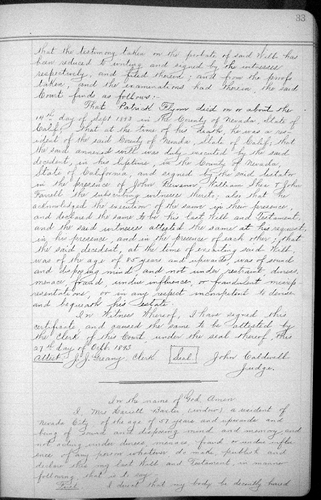 33
that the testimony taken on the probate of said Will has
been reduced to writing and signed by the witnesses
respectively, and filed therein; and from the proofs
taken, and the examinations had therein, the said
Court finds as follows:
That Patrick Flynn died on or about the
19th day of Sept 1893 in the County of Nevada, State of
Calif. That at the time of his death, he was a res-
ident of the said County of Nevada, State of Calif, that
the said annexed will was duly executed by the said
decedent, in his lifetime, in the County of Nevada,
State of California, and signed by the said testator
in the presence of John William Shea & John
Farrell the subscribing witnesses thereto; also that he
acknowledged the execution of the same in their presence,
and declared the same to be his last Will and Testament,
and the said witnesses attested the same at his request,
in his presence, and in the presence of each other; that
the said decedent, at the time of executing said Will,
was of the age of 65 years and upwards, was of sound
and disposing mind, and not under restraint, duress,
menace, fraud, undue influence, or fraudulent misrep-
resentations, or in any respect incompetent to devise
and bequeath his estate.
In Witness Whereof, I have signed this
certificate and caused the same to be attested by
the Clerk of this Court under the seal thereof this
27th day of Octb 1893
Attest J. J. Greany Clerk [Seal] John Caldwell
Judge.
In the name of God, Amen
I, Mrs Harriett (widow) a resident of
Nevada City of the age of 52 years and upwards and
being of sound and disposing mind and memory, and
not acting under duress, menace, fraud or undue influ-
ence of any person whatever do make, publish and
declare this my last Will and Testament, in manner
following, that is to say
First I direct that my body be decently buried